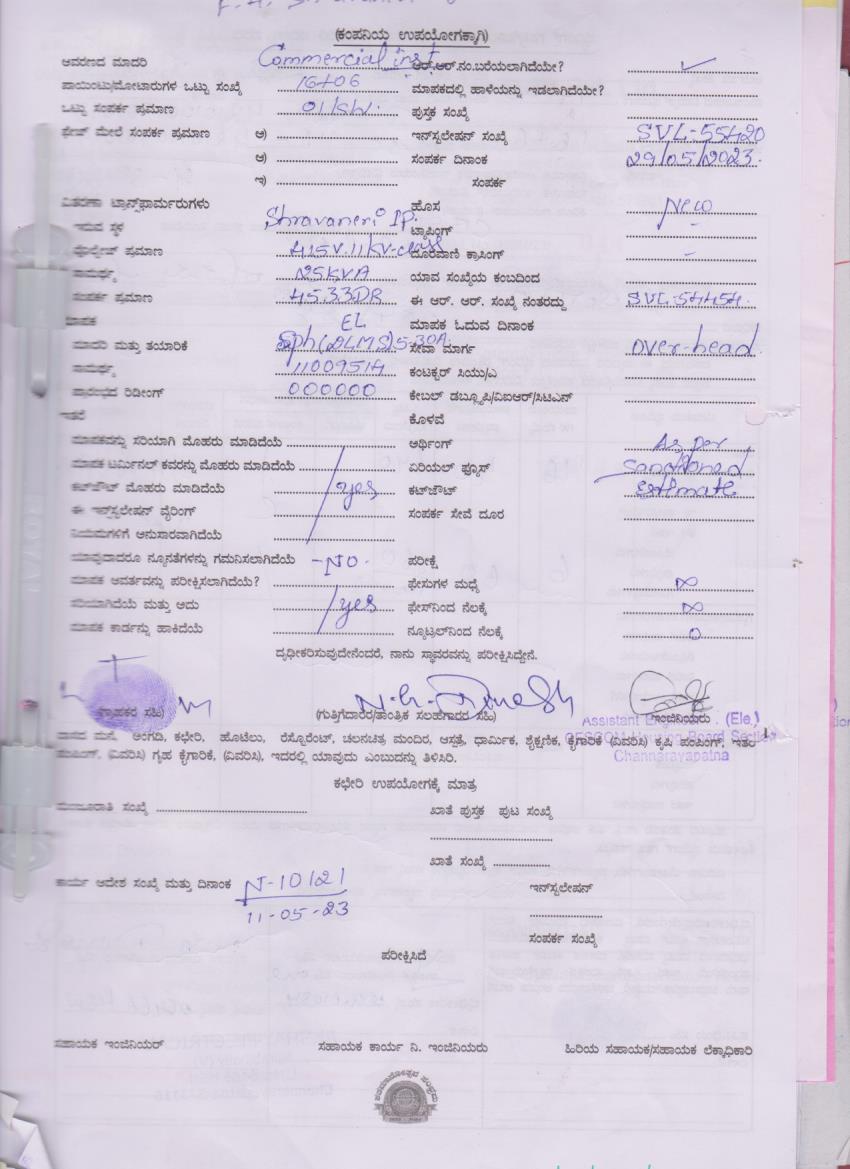 (ಕಂಪನಿಯ ಉಪಯೋಗಕ್ಕಾಗಿ)
ಆವರಣದ ಮಾದರಿ Commercial inst ಆರ್.ಆರ್.ನಂ.ಬರೆಯಲಾಗಿದೆಯೇ? ✓
ಪಾಯಿಂಟು/ಮೋಟಾರುಗಳ ಒಟ್ಟು ಸಂಖ್ಯೆ ಮಾಪಕದಲ್ಲಿ ಹಾಳೆಯನ್ನು ಇಡಲಾಗಿದೆಯೇ?
ಒಟ್ಟು ಸಂಪರ್ಕ ಪ್ರಮಾಣ 01KW. ಪುಸ್ತಕ ಸಂಖ್ಯೆ
ಫೇಜ್ ಮೇಲೆ ಸಂಪರ್ಕ ಪ್ರಮಾಣ ಅ) ಇನ್‌ಸ್ಟಲೇಷನ್ ಸಂಖ್ಯೆ SVL-55420
ಆ) ಸಂಪರ್ಕ ದಿನಾಂಕ 29/05/2023.
ಇ) ಸಂಪರ್ಕ
ವಿತರಣಾ ಟ್ರಾನ್ಸ್‌ಫಾರ್ಮರುಗಳು ಹೊಸ New
ಇರುವ ಸ್ಥಳ Shravaneri Ip. ಟ್ಯಾಪಿಂಗ್ -
ವೋಲ್ಟೇಜ್ ಪ್ರಮಾಣ 415V.11KV-class ದೂರವಾಣಿ ಕ್ರಾಸಿಂಗ್ -
ಸಾಮರ್ಥ್ಯ 25KVA ಯಾವ ಸಂಖ್ಯೆಯ ಕಂಬದಿಂದ
ಸಂಪರ್ಕ ಪ್ರಮಾಣ ಈ ಆರ್. ಆರ್. ಸಂಖ್ಯೆ ನಂತರದ್ದು SVL-54454.
ಮಾಪಕ EL ಮಾಪಕ ಓದುವ ದಿನಾಂಕ
ಮಾದರಿ ಮತ್ತು ತಯಾರಿಕೆ Sph(DLMS)5-30A ಸೇವಾ ಮಾರ್ಗ over-head
ಸಾಮರ್ಥ್ಯ 11009514 ಕಂಟಕ್ಟರ್ ಸಿಯು/ಎ
ಪ್ರಾರಂಭದ ರಿಡೀಂಗ್ 000000 ಕೇಬಲ್ ಡಬ್ಲ್ಯೂಪಿ/ವಿಐಆರ್/ಸಿಟಿಎನ್
ಇತರೆ ಕೊಳವೆ
ಮಾಪಕವನ್ನು ಸರಿಯಾಗಿ ಮೊಹರು ಮಾಡಿದೆಯೆ ಆರ್ಥಿಂಗ್ As per
ಮಾಪಕ ಟರ್ಮಿನಲ್ ಕವರನ್ನು ಮೊಹರು ಮಾಡಿದೆಯೆ ಏರಿಯಲ್ ಫ್ಯೂಸ್ sanctioned
ಕಟ್‌ಔಟ್ ಮೊಹರು ಮಾಡಿದೆಯೆ yes ಕಟ್‌ಔಟ್ Estimate
ಈ ಇನ್‌ಸ್ಟಲೇಷನ್ ವೈರಿಂಗ್ ಸಂಪರ್ಕ ಸೇವೆ ದೂರ
ನಿಯಮಗಳಿಗೆ ಅನುಸಾರವಾಗಿದೆಯೆ
ಯಾವುದಾದರೂ ನ್ಯೂನತೆಗಳನ್ನು ಗಮನಿಸಲಾಗಿದೆಯೆ -NO. ಪರೀಕ್ಷೆ
ಮಾಪಕ ಆವರ್ತವನ್ನು ಪರೀಕ್ಷಿಸಲಾಗಿದೆಯೆ? ಫೇಸುಗಳ ಮಧ್ಯೆ ∞
ಸರಿಯಾಗಿದೆಯೆ ಮತ್ತು ಅದು yes ಫೇಸ್‌ನಿಂದ ನೆಲಕ್ಕೆ ∞
ಮಾಪಕ ಕಾರ್ಡನ್ನು ಹಾಕಿದೆಯೆ ನ್ಯೂಟ್ರಲ್‌ನಿಂದ ನೆಲಕ್ಕೆ 0
ದೃಢೀಕರಿಸುವುದೇನೆಂದರೆ, ನಾನು ಸ್ಥಾವರವನ್ನು ಪರೀಕ್ಷಿಸಿದ್ದೇನೆ.
(ಗ್ರಾಹಕರ ಸಹಿ) (ಗುತ್ತಿಗೆದಾರರ/ತಾಂತ್ರಿಕ ಸಲಹಗಾರರ ಸಹಿ) ಇಂಜಿನಿಯರು
Assistant (Ele.)
ವಾಸದ ಮನೆ, ಅಂಗಡಿ, ಕಛೇರಿ, ಹೊಟೆಲು, ರೆಸ್ಟೊರೆಂಟ್, ಚಲನಚಿತ್ರ ಮಂದಿರ, ಆಸ್ಪತ್ರೆ, ಧಾರ್ಮಿಕ, ಶೈಕ್ಷಣಿಕ, ಕೈಗಾರಿಕೆ (ವಿವರಿಸಿ) ಕೃಷಿ ಪಂಪಿಂಗ್, ಇತರೆ
CESCOM Housing Board Section
ಪಂಪಿಂಗ್, (ವಿವರಿಸಿ) ಗೃಹ ಕೈಗಾರಿಕೆ, (ವಿವರಿಸಿ), ಇದರಲ್ಲಿ ಯಾವುದು ಎಂಬುದನ್ನು ತಿಳಿಸಿರಿ.
Channarayapatna
ಕಛೇರಿ ಉಪಯೋಗಕ್ಕೆ ಮಾತ್ರ
ಮಂಜೂರಾತಿ ಸಂಖ್ಯೆ ಖಾತೆ ಪುಸ್ತಕ ಪುಟ ಸಂಖ್ಯೆ
ಖಾತೆ ಸಂಖ್ಯೆ
ಕಾರ್ಯ ಆದೇಶ ಸಂಖ್ಯೆ ಮತ್ತು ದಿನಾಂಕ N-10121 ಇನ್‌ಸ್ಟಲೇಷನ್
11-05-23
ಸಂಪರ್ಕ ಸಂಖ್ಯೆ
ಪರೀಕ್ಷಿಸಿದೆ
ಸಹಾಯಕ ಇಂಜಿನಿಯರ್ ಸಹಾಯಕ ಕಾರ್ಯ ನಿ. ಇಂಜಿನಿಯರು ಹಿರಿಯ ಸಹಾಯಕ/ಸಹಾಯಕ ಲೆಕ್ಕಾಧಿಕಾರಿ